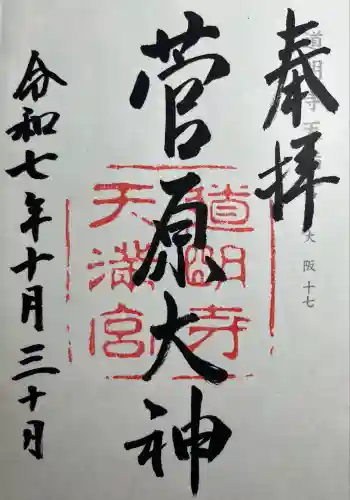 奉拝
道明寺天
大阪十七
菅原大神
道明寺
天満宮
令和七年十月三十日